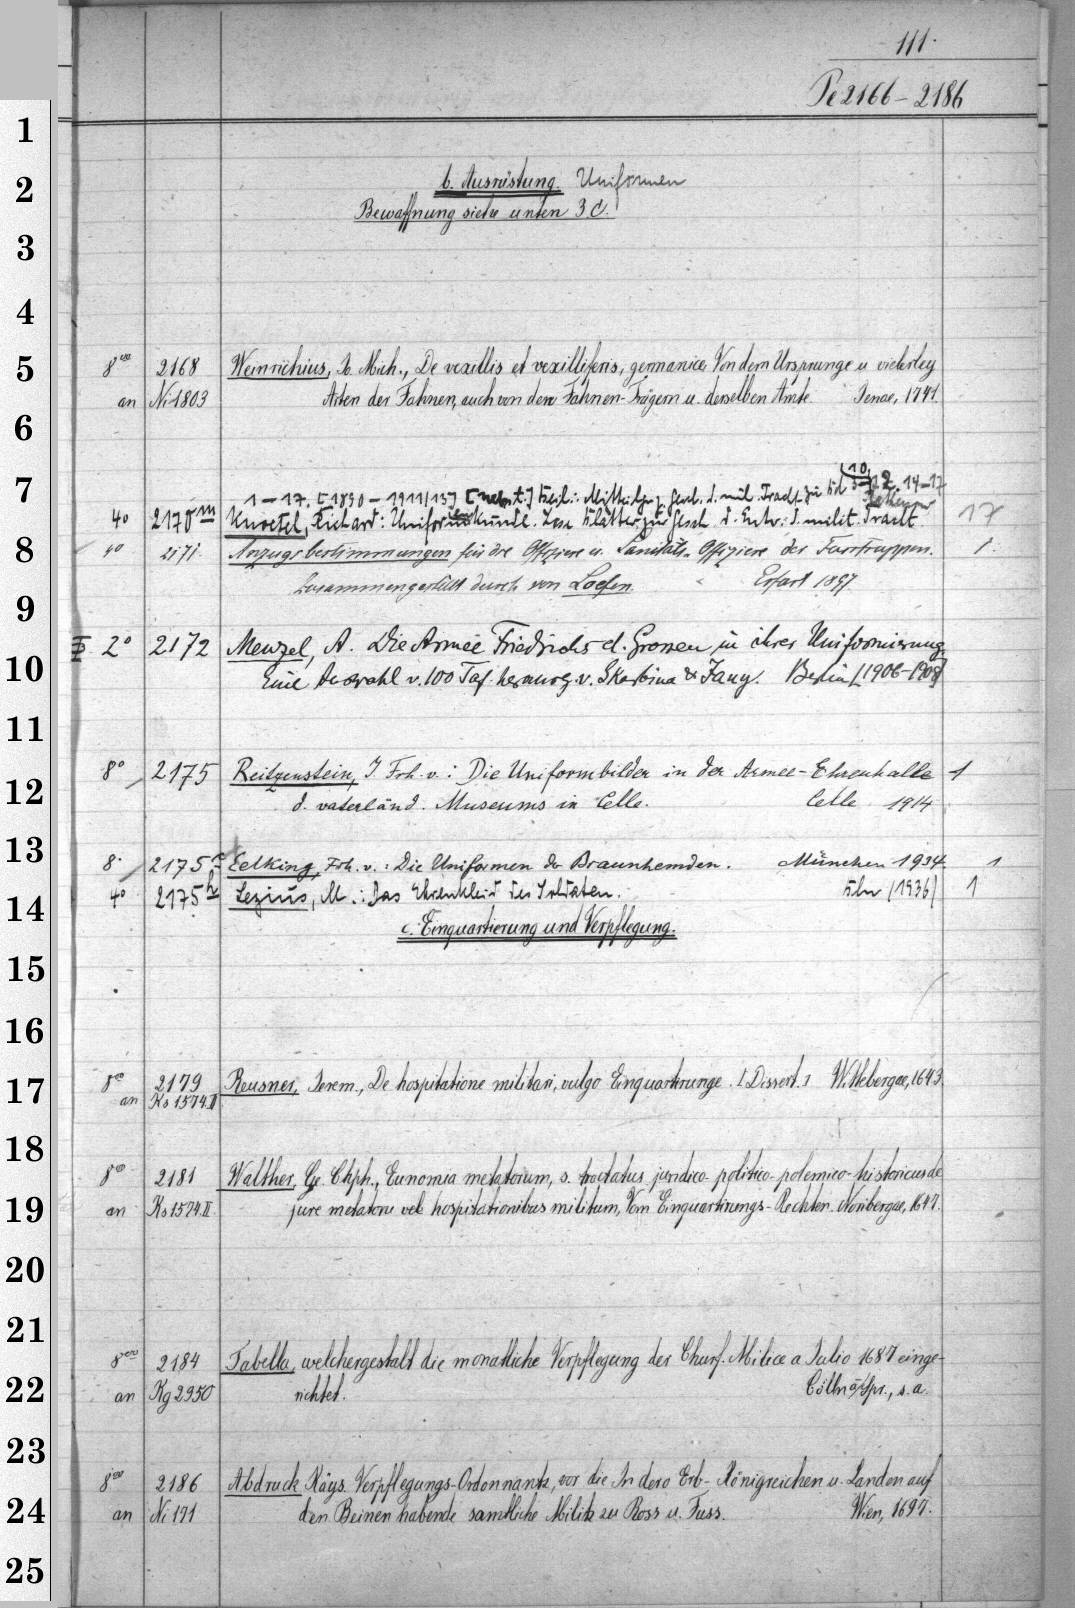 111.
Pe 2166-2186
1
b. Ausrüstung. Uniformen
2
Bewaffnung siehe unten 3 C.
3
4
8vo 2168 Weinrichius, Jo. Mich., De vexillis et vexilliferis, germanice Von dem Ursprunge u. vielerley
5
an Ni 1803 Arten der Fahnen, auch von dere Fahnen-Trägern u. derselben Amte. Jenae, 1741.
6
7
1-17. [1890-1911/13] [nebst] Beil.: Mitteilgn z. Gesch. d. mil. Tracht 12. 14-17
4o 2170m Knoetel, Richard: Uniformenkunde. Lose Blätter zur Gesch. d. Entw. d. milit. Tracht. 17
8
4o 2171. Anzugsbestimmungen für die Offiziere u. Sanitäts-Offiziere der Fusstruppen. 1.
Zusammengestellt durch von Loefen. Erfurt 1897
9
2o 2172 Menzel, A. Die Armee Friedrichs d. Grossen in ihrer Uniformierung
10
Eine Auswahl v. 100 Taf. herausg. v. Skarbina & Jany. Berlin [1906-1908]
11
8o 2175 Reitzenstein, J. Frh. v.: Die Uniformbilder in der Armee-Ehrenhalle 1
12
d. vaterländ. Museums in Celle. Celle 1914
13
8. 2175 Eelking, Frh. v.: Die Uniformen der Braunhemden. München 1934. 1
4o 2175 Lezius, M.: Das Ehrenkleid des Soldaten. Bln (1936) 1
14
c. Einquartierung und Verpflegung.
15
16
8vo 2179 Reusner, Jerem., De hospitatione militari, vulgo Einquartirunge. [Dissert.] Wittebergae, 1643.
17
an Ks 1574.II
18
8vo 2181 Walther, Ge. Chph., Eunomia metatorum, s. tractatus juridico-politico-polemico-historicus de
19
an Ks 1574.II. jure metatorum vel hospitationibus militum, Vom Einquartirungs-Rechten. Noribergae, 1647.
20
21
8vo 2184 Tabella, welchergestalt die monatliche Verpflegung der Churf. Milice a Julio 1687 einge-
22
an Kg 2950 richtet. Cölln a/Spr., s. a.
23
8vo 2186 Abdruck Käys. Verpflegungs-Ordonnantz, vor die In dero Erb-Königreichen u. Landen auf
24
an Ni 171 den Beinen habende samtliche Militz zu Ross u. Fuss. Wien, 1697.
25